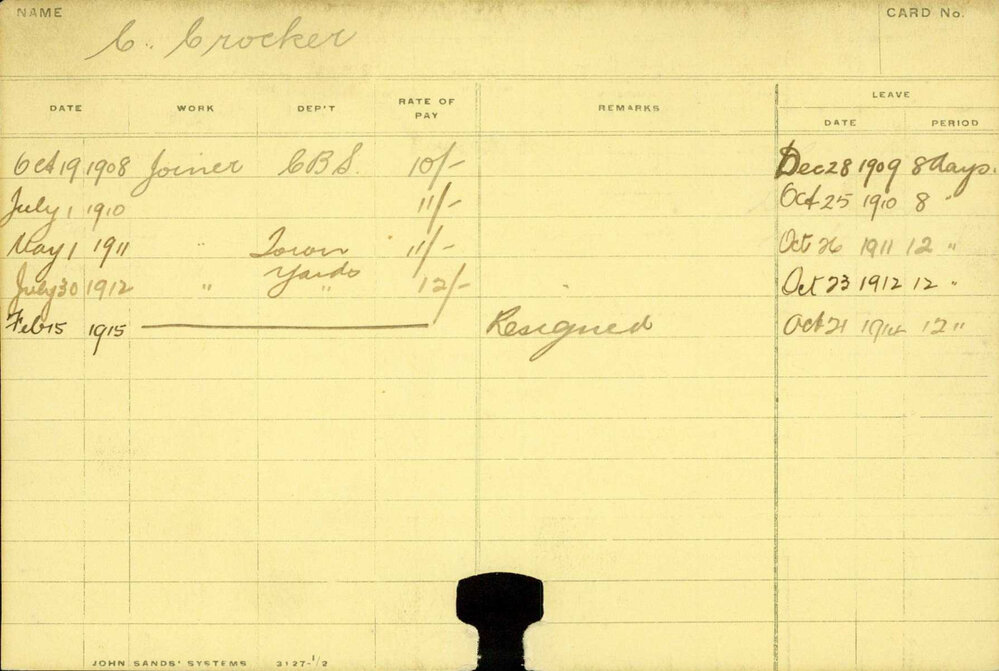 NAME C. Crocker CARD No.
DATE WORK DEP'T RATE OF PAY REMARKS LEAVE
DATE PERIOD
Oct 19 1908 Joiner C B S. 10/- Dec 28 1909 8 days.
July 1 1910 11/- Oct 25 1910 8 "
May 1 1911 " Town 11/- Oct 26 1911 12 "
Yards
July 30 1912 " " 12/- Oct 23 1912 12 "
Feb 15 1915 Resigned Oct 21 1914 12 "
JOHN SANDS' SYSTEMS 3127-1/2